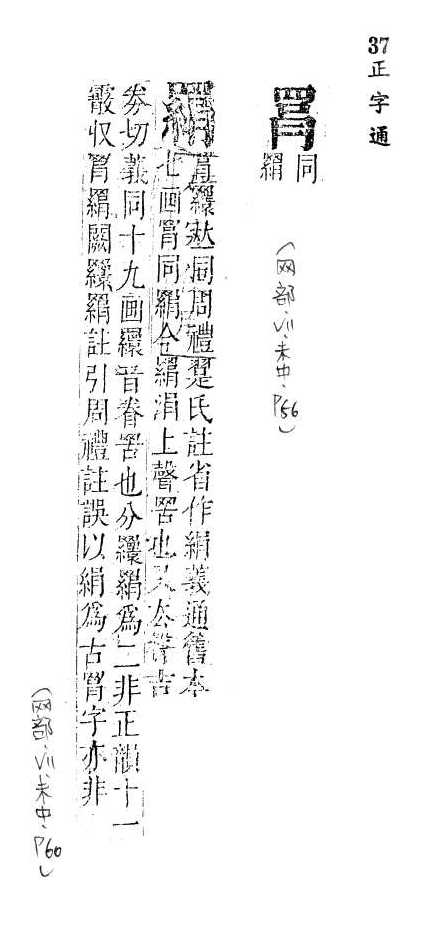 37 正字通
罥
同羂
(网部.VII.未中.P56)
羂
罥繯𠀤同周禮翨氏註省作絹義通舊本
七画罥同羂仝羂涓上聲罟也又去聲吉
劵切義同十九画繯音眷罟也分繯羂爲二非正韻十一
霰収罥羂闕繯羂註引周禮註誤以絹爲古罥字亦非
(网部.VII.未中.P60)